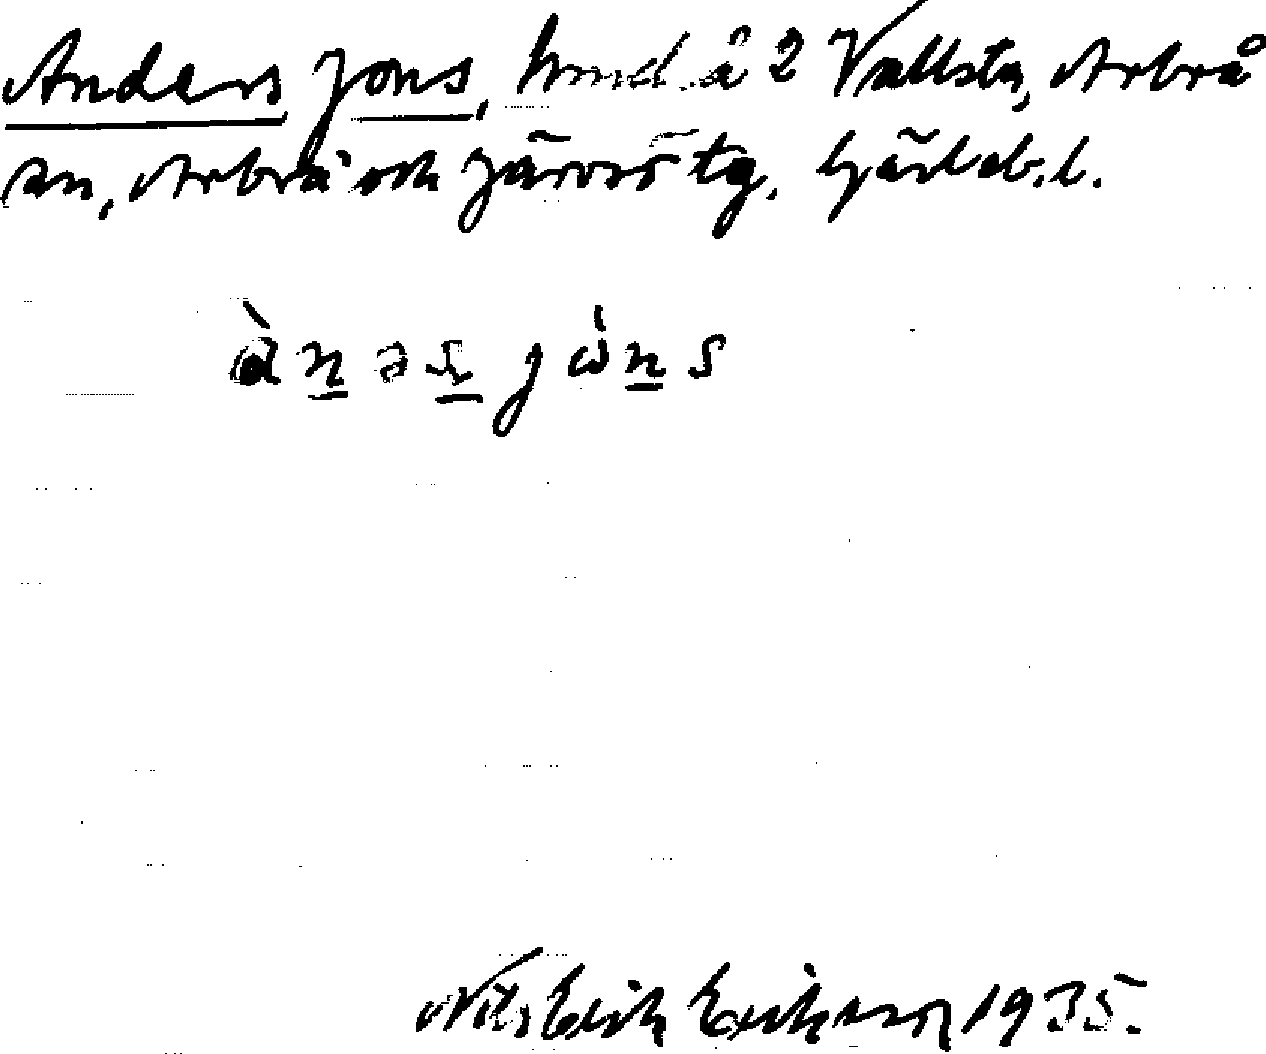 Anders Jons, hmd å 2 Vallsta, Arbrå
sn, Arbrå och Järvsö tg. Gävleb. l.
ànəs jòns
Nils Erik Erikson 1935.